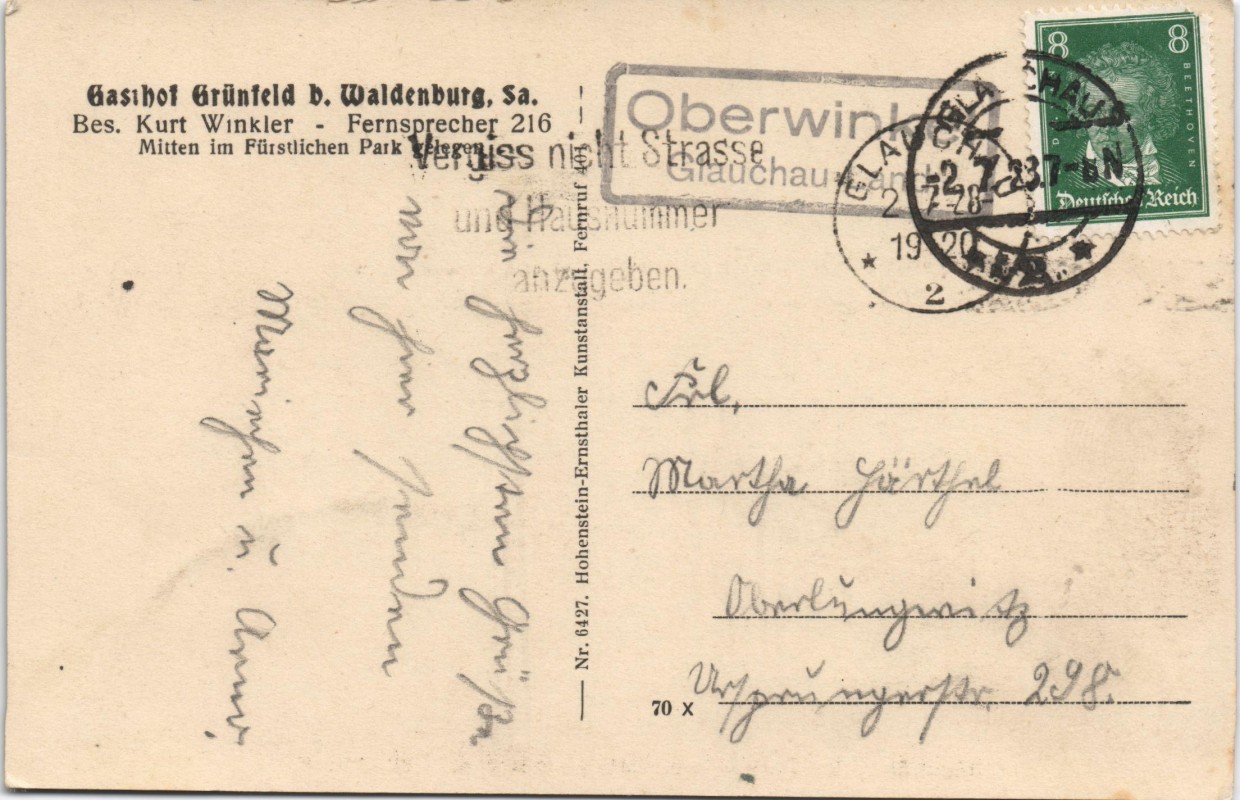 Gasthof Grünfeld b. Waldenburg, Sa.
Bes. Kurt Winkler - Fernsprecher 216
Mitten im Fürstlichen Park gelegen
Die herzlichsten Grüße
von hier senden
u.
Nr. 6427. Hohenstein-Ernsthaler Kunstanstalt, Fernruf 401
Vergiss nicht Strasse
und Hausnummer
anzugeben.
Oberwink
Glauchau-Land
GLAUCHAU
2 7-28-
19-20
2
GLAUCHAU
-2.7.28.7-8N
8 8
BEETHOVEN
Deutsches Reich
Frl.
Martha Härthel
Oberlungwitz
Ursprungerstr. 298.
70 x